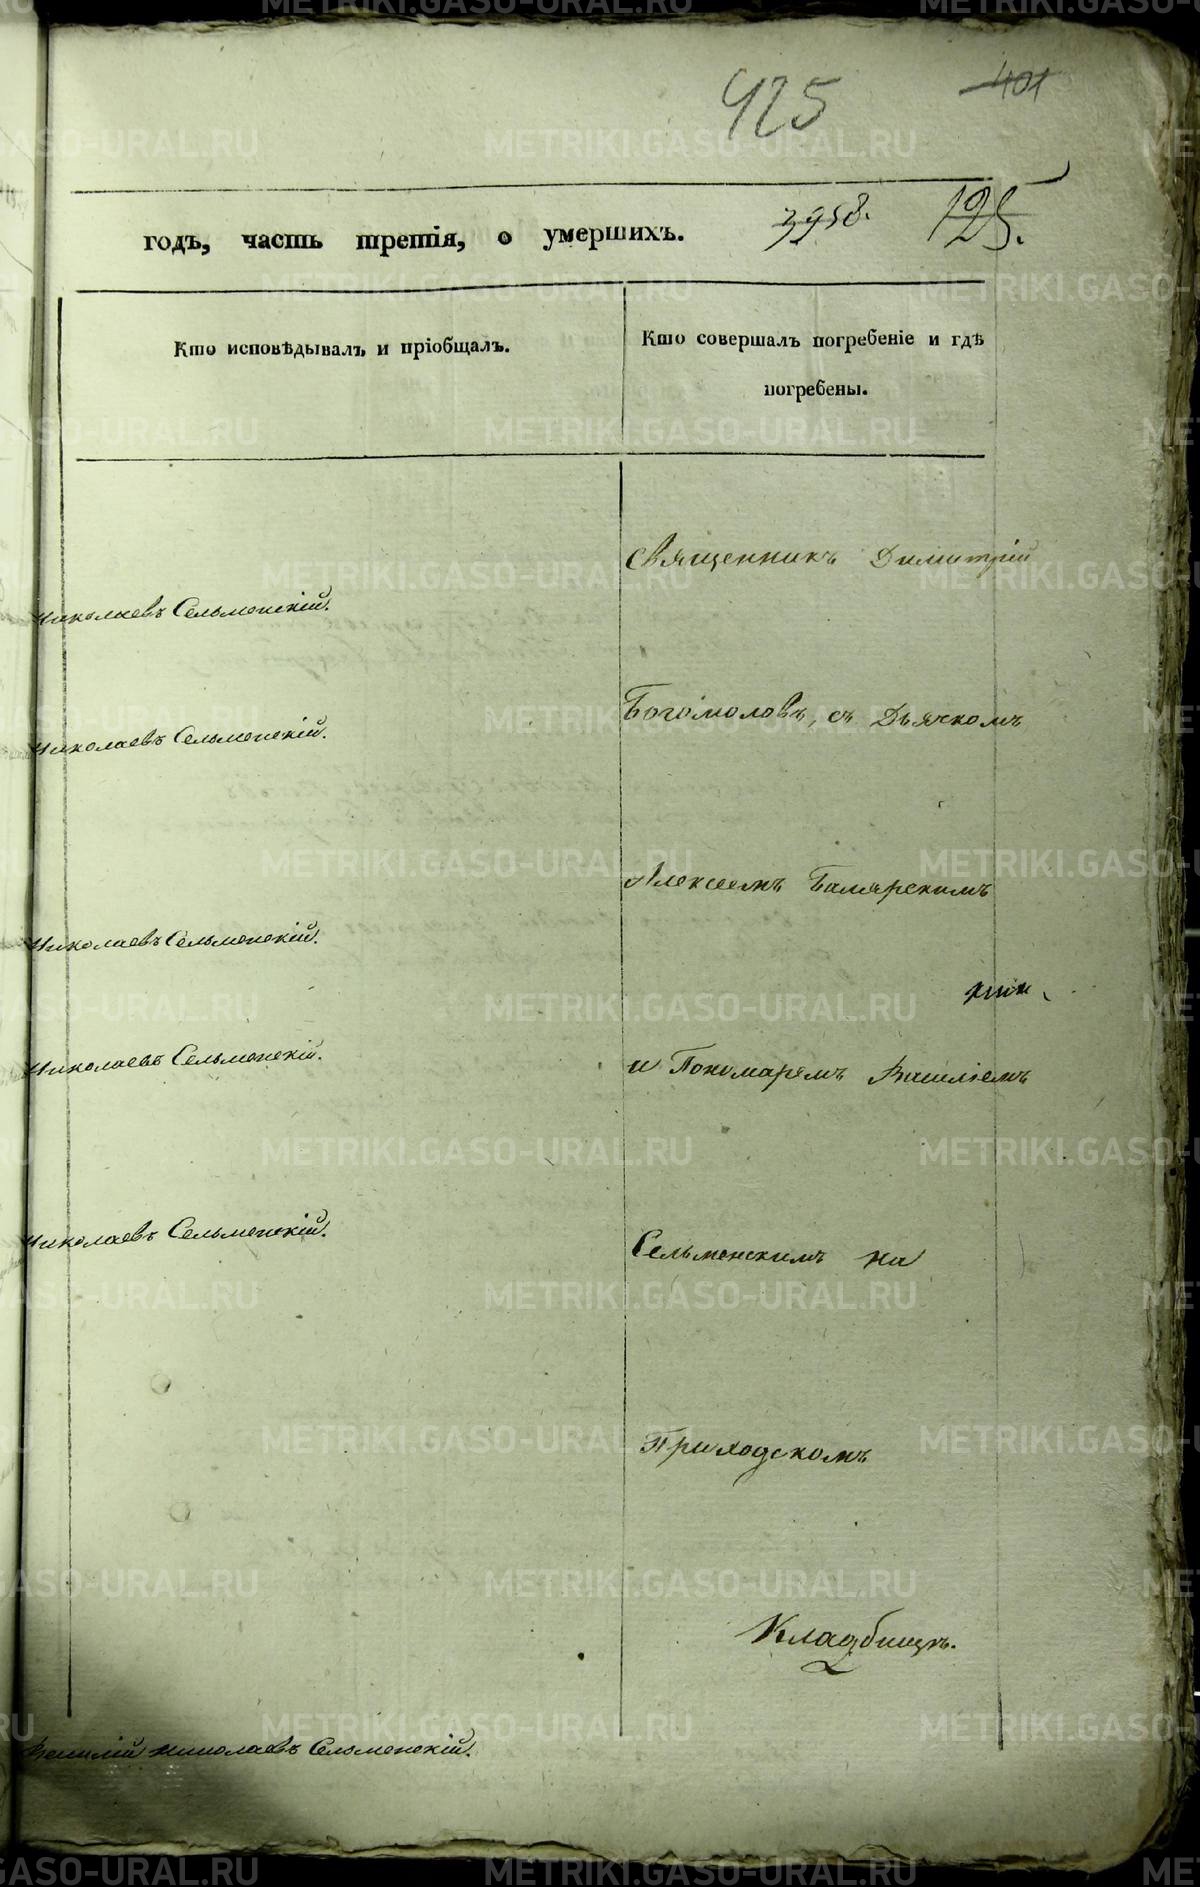 425 401
годъ, часть третія, о умершихъ. 3958. 125.
Кто исповѣдывалъ и пріобщалъ.
Кто совершалъ погребеніе и гдѣ
погребены.
Священникъ Димитрій
Николаевъ Сельменскій.
Богомоловъ, съ Дьячкомъ
Николаевъ Сельменскій.
Алексеемъ
Николаевъ Сельменскій.
и Пономаремъ Василіемъ
Николаевъ Сельменскій.
Сельменскимъ на
Николаевъ Сельменскій.
Приходскомъ
Кладбищѣ.
Василій Николаевъ Сельменскій.
METRIKI.GASO-URAL.RU